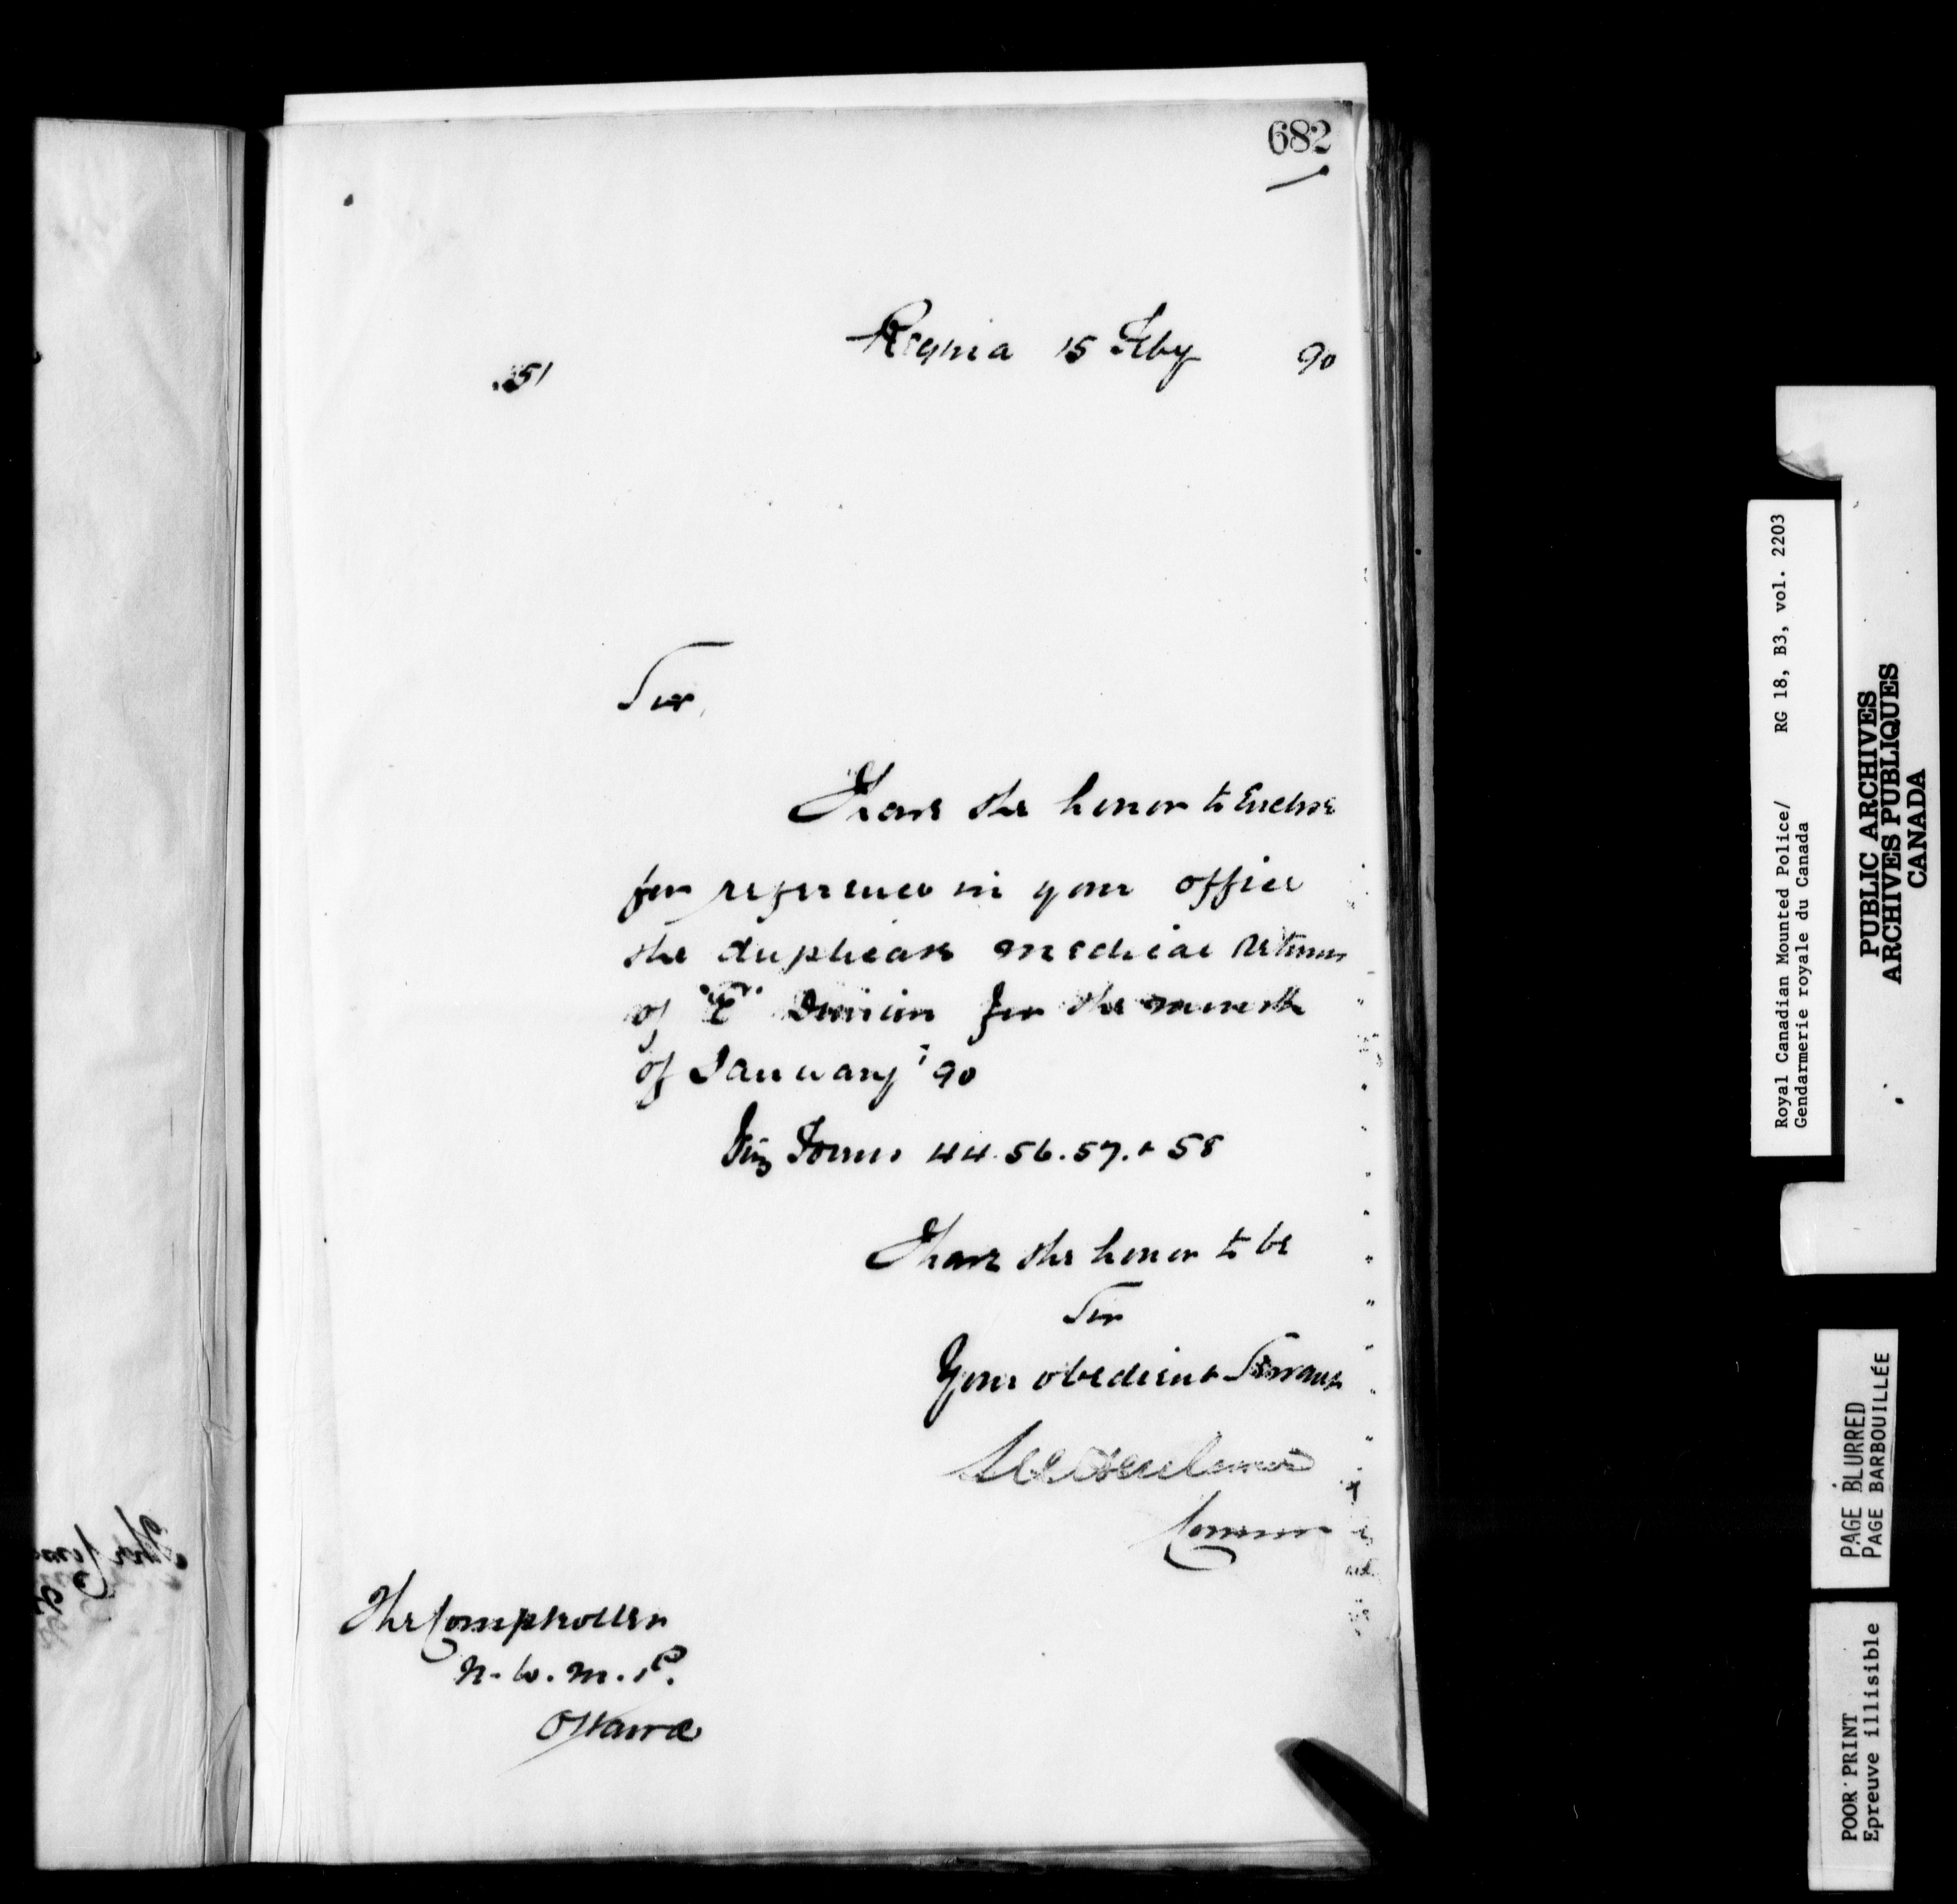 682
Regina 15 Feby 90
51
Sir,
I have the honor to Enclose
for reference in your office
the duplicate medical returns
of "E" Division for the month
of January '90
Viz Forms 44. 56. 57. & 58
I have the honor to be
Sir
Your obedient Servant
Commr
The Comptroller
N. W. M. P.
Ottawa
Royal Canadian Mounted Police/ RG 18, B3, vol. 2203
Gendarmerie royale du Canada
PUBLIC ARCHIVES
ARCHIVES PUBLIQUES
CANADA
PAGE BLURRED
PAGE BARBOUILLÉE
POOR PRINT
Epreuve illisible